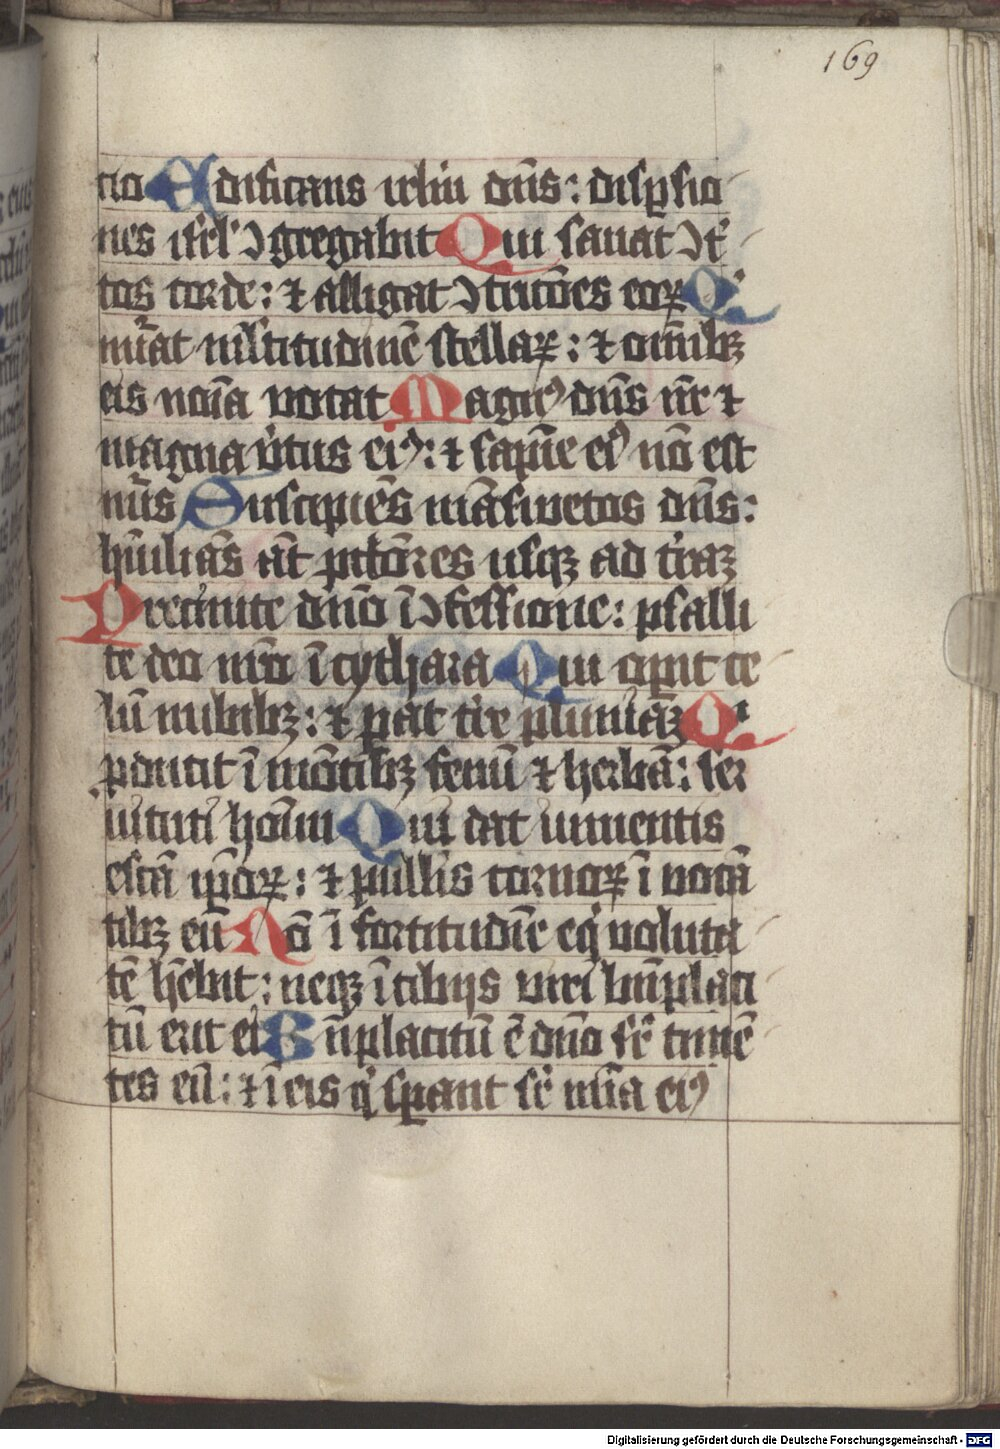 169
cio Edificans irlm̄ dn̄s: dispsio
nes isrl' ↄgregabit Qui sanat ↄt'
tos corde: ⁊ alligat ↄtricōes eoꝝ Qͥ
nūat mltitudinē stellaꝝ: ⁊ om̄ibꝫ
eis noīa vocat Magnꝰ dn̄s nr̄ ⁊
magna v̓tus eiꝰ: ⁊ sapīe eiꝰ nō est
nūs Suscipiēs māsuetos dn̄s:
hūiliās aūt pctōres usqꝫ ad t̓raꝫ
Precinite dn̄o ī ↄfessione: psalli
te deo nr̄o ī cythara Qui opit ce
lū nubibꝫ: ⁊ pat t̓re pluuiāꝫ Qͥ
ꝓducit ī mōtibꝫ fenū ⁊ herbā: ser
uituti hoīm Qui dat iumentis
escā ip̄oꝝ: ⁊ pullis coruoꝝ ī vocā
tibꝫ eū Nō ī fortitudīe eqͥ volunta
tē hēbit: neqꝫ ī tibijs viri bn̄placi
tū erit ei Bn̄placitū ē dn̄o sr̄ timē
tes eū: ⁊ ī eis qͥ sꝑant sr̄ mīa eiꝰ
Digitalisierung gefördert durch die Deutsche Forschungsgemeinschaft - DFG